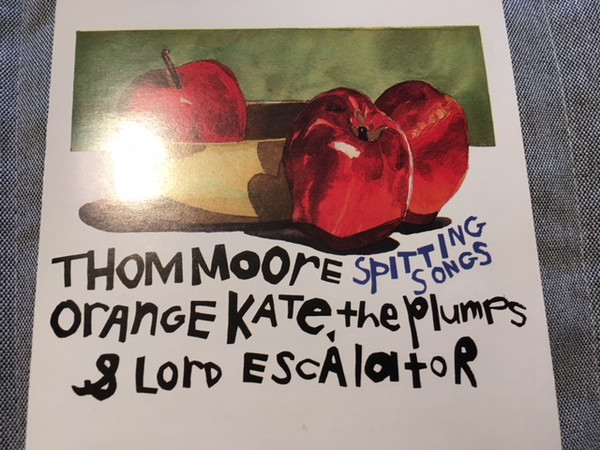 THOM MOOrE SPITTING SONGS
OrANGE KATe, the plumps
& LorD EscÀlatoR